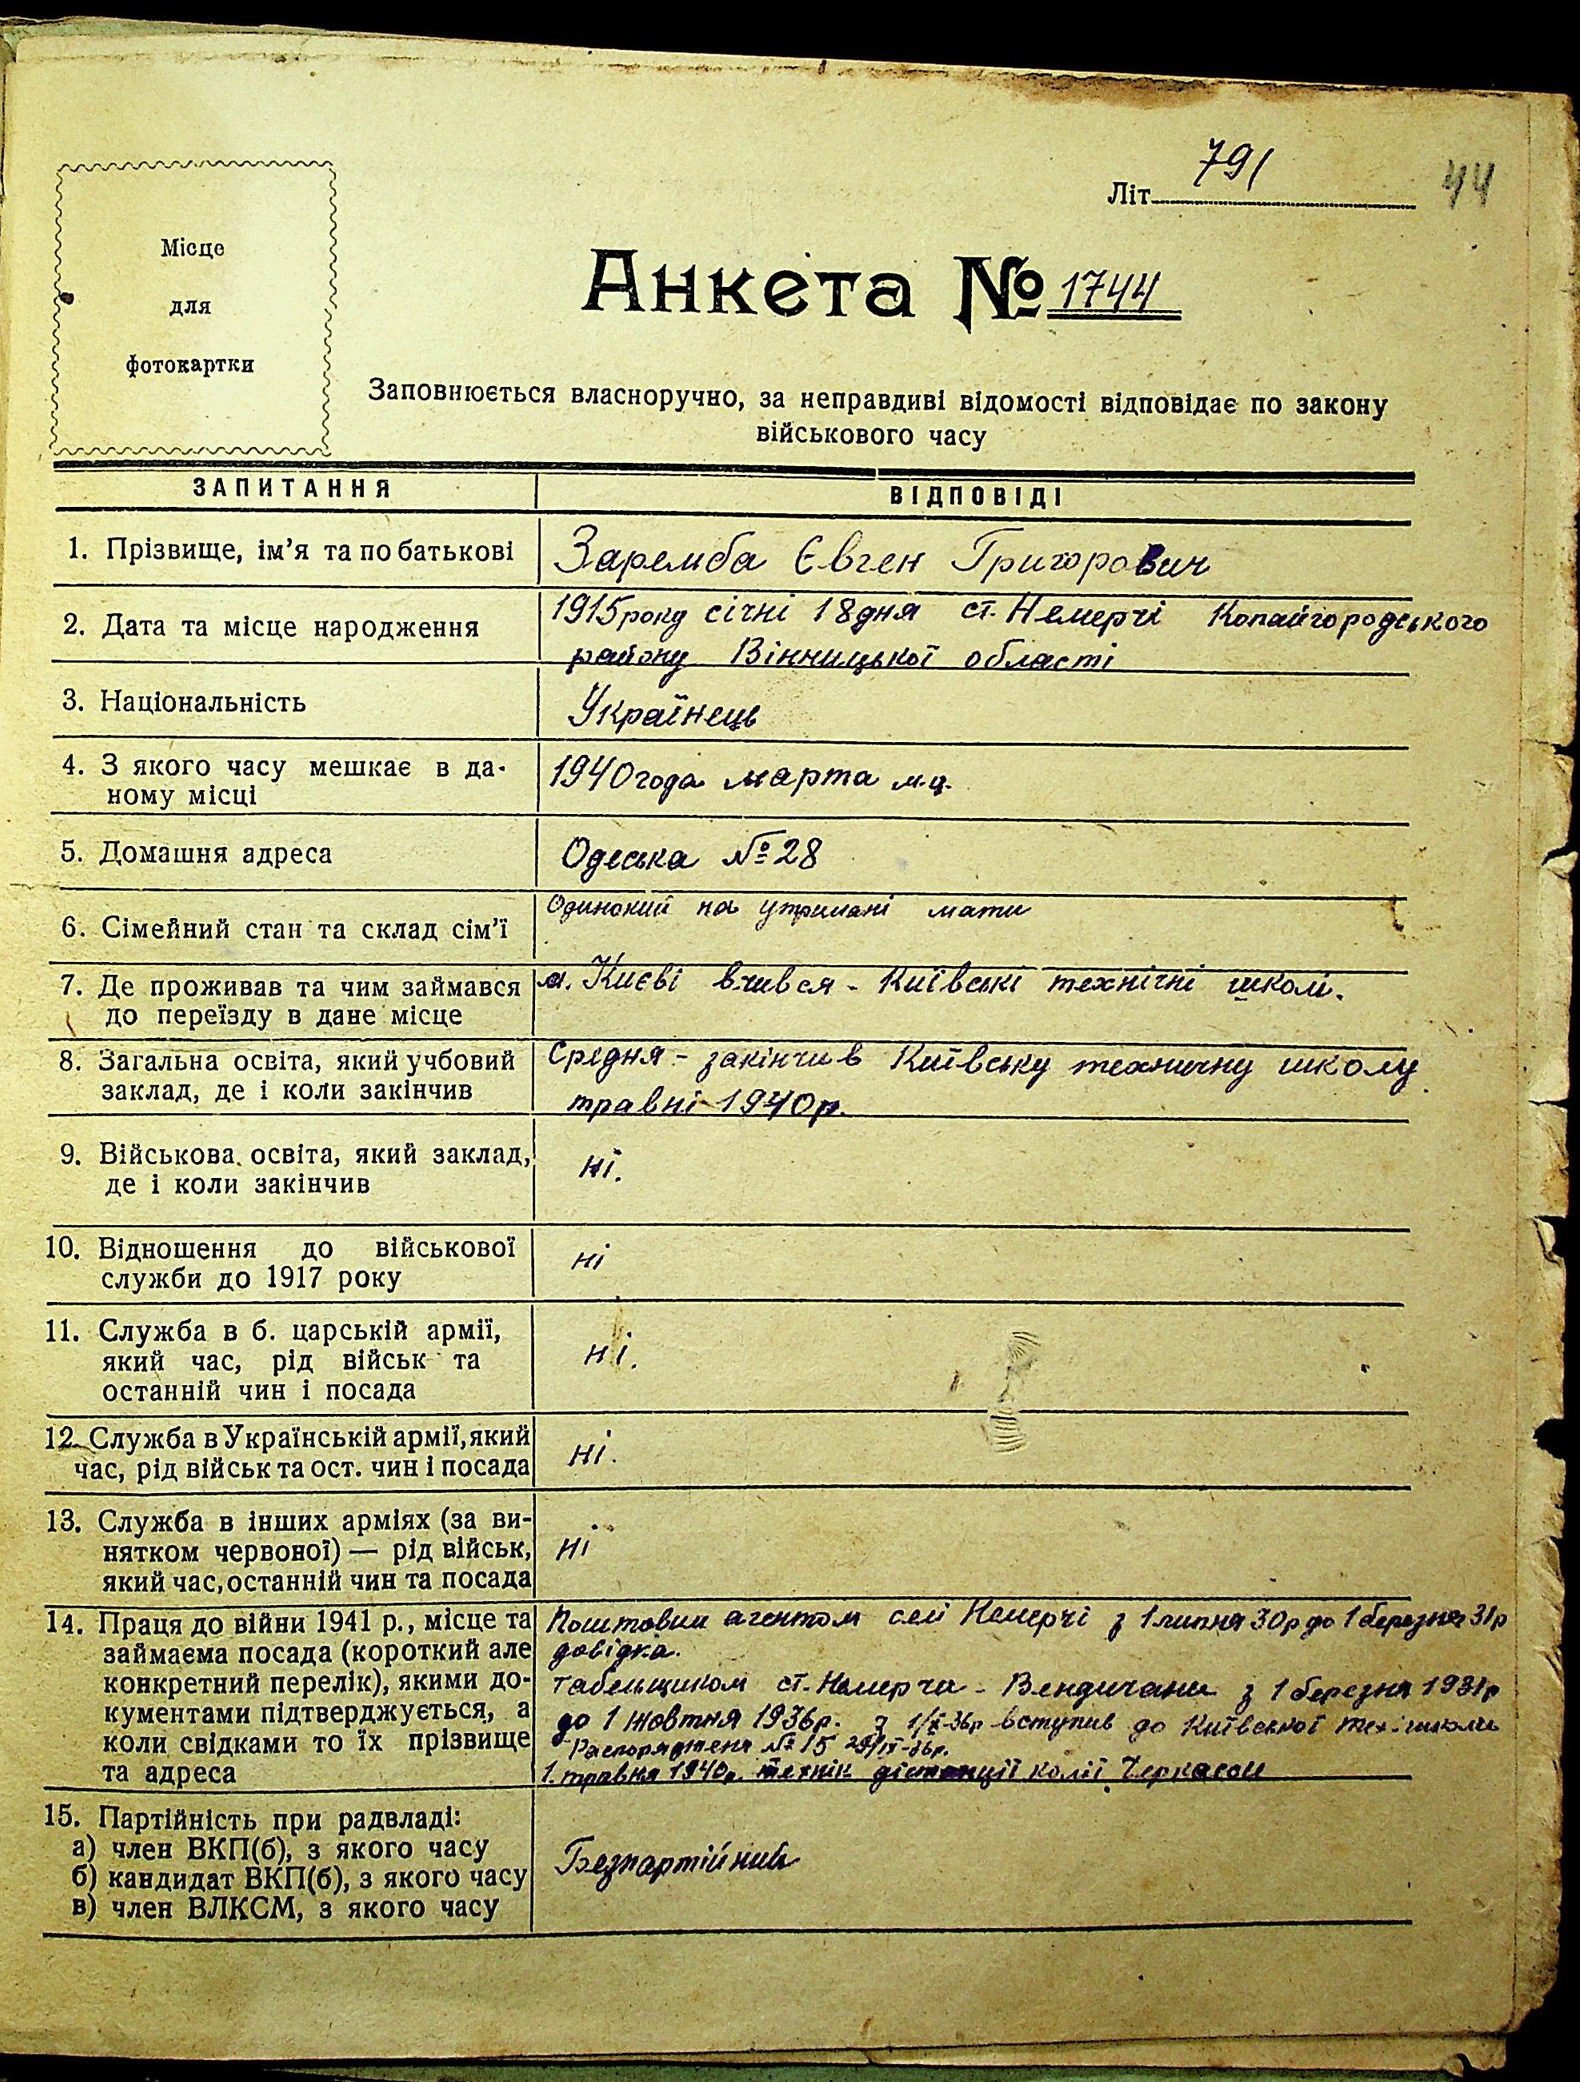 791
Літ
44
Місце
для
фотокартки
Анкета № 1744
Заповнюється власноручно, за неправдиві відомості відповідає по закону
військового часу
ЗАПИТАННЯ
ВІДПОВІДІ
1. Прізвище, ім'я та по батькові
Заремба Євген Григорович
2. Дата та місце народження
1915 року січні 18 дня ст. Немерчі Копайгородського
району Вінницької області
3. Національність
Українець
4. З якого часу мешкає в да-
ному місці
1940 года марта м-ц.
5. Домашня адреса
Одеська № 28
6. Сімейний стан та склад сім'ї
Одинокий на утримані мати
7. Де проживав та чим займався
до переїзду в дане місце
м. Києві вчився - Київські технічні школі.
8. Загальна освіта, який учбовий
заклад, де і коли закінчив
Средня - закінчив Київську техничну школу
травні 1940 р.
9. Військова освіта, який заклад,
де і коли закінчив
ні.
10. Відношення до військової
служби до 1917 року
ні
11. Служба в б. царській армії,
який час, рід військ та
останній чин і посада
ні.
12. Служба в Українській армії, який
час, рід військ та ост. чин і посада
ні.
13. Служба в інших арміях (за ви-
нятком червоної) — рід військ,
який час, останній чин та посада
ні
14. Праця до війни 1941 р., місце та
займаєма посада (короткий але
конкретний перелік), якими до-
кументами підтверджується, а
коли свідками то їх прізвище
та адреса
Поштовим агентом селі Немерчі з 1 липня 30 р до 1 березня 31 р
довідка.
табельщиком ст. Немерчи - Вендичани з 1 березня 1931 р
до 1 жовтня 1936 р. з 1/X-36 р вступив до Київської тех. школи
Распоряджена № 15 29/IX-36 р.
1. травня 1940 р. технік дістанції колії Черкаси
15. Партійність при радвладі:
а) член ВКП(б), з якого часу
б) кандидат ВКП(б), з якого часу
в) член ВЛКСМ, з якого часу
Безпартійний